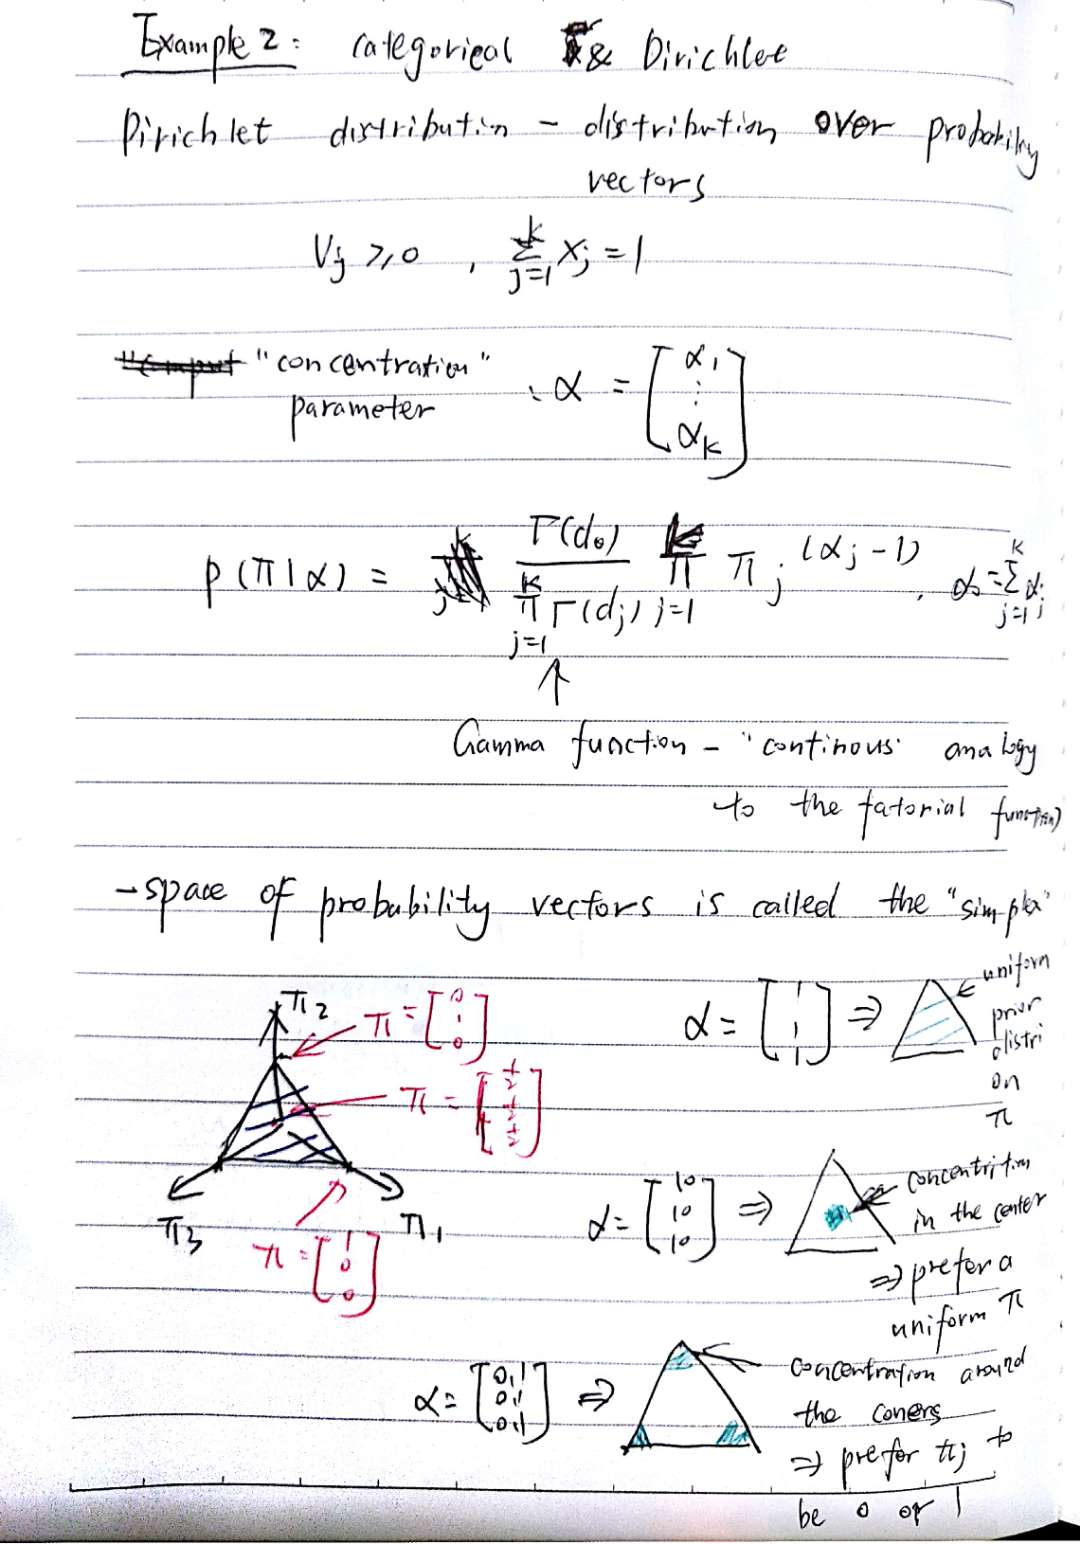 Example 2: categorical & Dirichlet
Dirichlet distribution - distribution over probability
vectors
Vj ≥ 0 , Σ_{j=1}^{k} Xj = 1
"concentration" parameter : α = [α1 ⋮ αk]
p(π|α) = Γ(α0) / ∏_{j=1}^{k} Γ(αj) ∏_{j=1}^{k} πj^(αj -1) , α0 = Σ_{j=1}^{k} αj
↑
Gamma function - "continous" analogy
to the fatorial function)
- space of probability vectors is called the "simplex"
π2
π = [0 1 0]
π = [1/2 1/2 1/2]
π3
π1
π = [1 0 0]
α = [1 1 1] ⇒
← uniform
prior
distri
on
π
α = [10 10 10] ⇒
concentrition
in the center
⇒ prefer a
uniform π
α = [0.1 0.1 0.1] ⇒
concentration around
the coners
⇒ prefer πj to
be 0 or 1